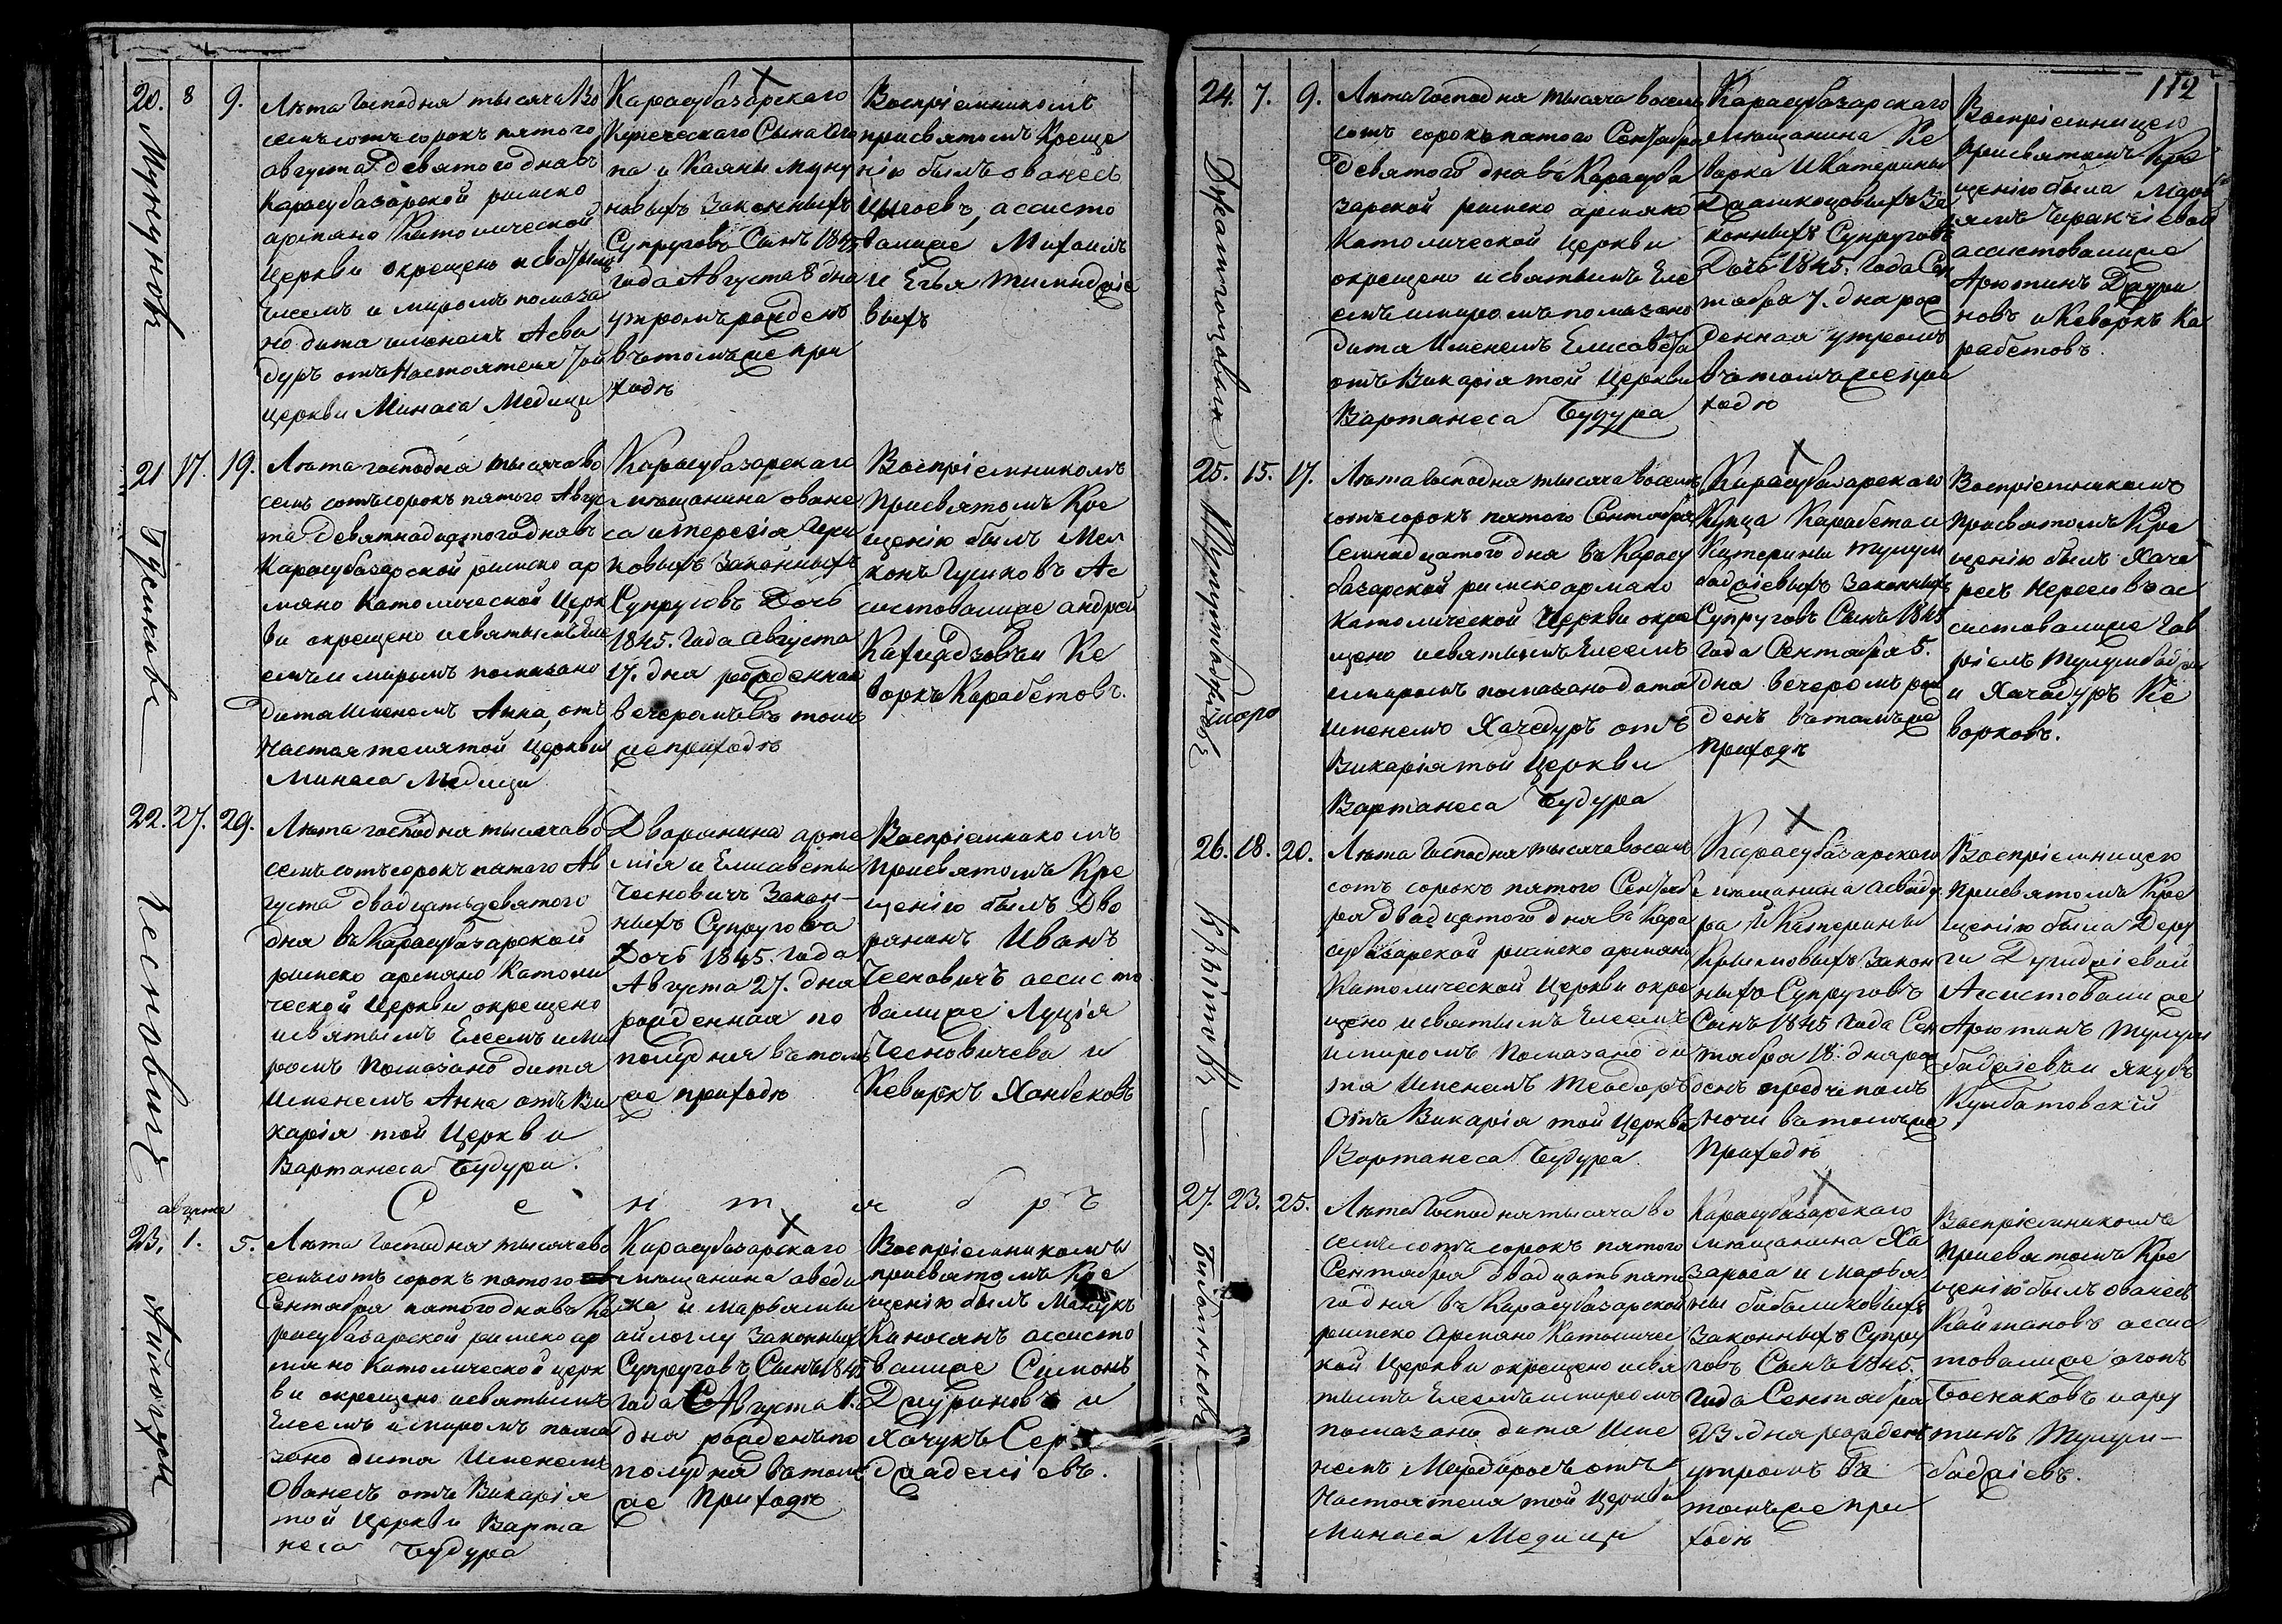 20. 8 9.
Лѣта Господня тысяча во
семъ сотъ сорокъ пятого
августа девятого дня въ
Карасубазарской римско
армяно Католической
Церкви окрещено и святымъ
Елеемъ и миромъ помаза
но дитя именемъ Асва
дуръ отъ Настоятеля той
церкви Минаса Медици
Карасубазарского
Купеческаго Сына Ого
па и Каяны Муну
новыхъ Законныхъ
Супруговъ Сынъ 1845
года Августа 8 дня
утромъ рожденъ
въ томъ же при
ходѣ
Воспріемникомъ
присвятомъ Креще
нію былъ ованесъ
ассисто
валиже Михаилъ
и Егья
выхъ
21 17. 19.
Лѣта господня тысяча во
семъ сотъ сорокъ пятого Авгус
та девятнадцятого дня въ
Карасубазарской римско ар
мяно Католической Церк
ви окрещено и святымъ Еле
емъ и миромъ помазано
дитя Именемъ Анна, отъ
Настоятеля той Церкви
Минаса Медици
Карасубазарскаго
мѣщанина ована
са и терезія
ковыхъ Законныхъ
Супруговъ Дочь
1845. Года Августа
17. дня рожденная
вечеромъ въ томъ
же приходѣ
Воспріемникомъ
Присвятомъ Кре
щенію былъ Мел
конъ Гушковъ Ас
систовалиже андрей
Ке
воркъ Карабетовъ.
22. 27. 29. Чеснович
Лѣта господня тысяча во
семъ сотъ сорокъ пятого Ав
густа двадцать девятого
дня въ Карасубазарской
римско армяно Католи
ческой Церкви окрещено
и святымъ Елеемъ и ми
ромъ помазано дитя
Именемъ Анна отъ Ви
карія той Церкви
Вартанеса Будура.
Дворянина арте
мія и Елисаветы
Чесновичъ Закон-
ныхъ Супругова
Дочь 1845. года
Августа 27. дня
рожденная по
полудня въ томъ
же приходѣ
Воспріемникомъ
Присвятомъ Кре
щенію былъ Дво
рянинъ Иванъ
Чесновичъ ассисто
валиже Луція
Чесновичева и
Кеворкъ Ханбековъ
С е н т я б р ъ
августа
23. 1. 5.
Лѣта Господня тысяча во
семъ сотъ сорокъ пятого
Сентября пятого дня въ Ка
расубазарской римско ар
мяно Католической церк
ви окрещено и святымъ
Елеемъ и миромъ пома
зано дитя Именемъ
Ованесъ отъ Викарія
той Церкви Варта
неса Будура
Карасубазарскаго
мѣщанина аведи
ка и Марьямы
айлоглу Законныхъ
Супруговъ Сынъ 1845
года Августа 1.
дня рожденъ по
полудня въ томъ
же Приходѣ
Воспріемникомъ
присвятомъ Кре
щенію былъ Манукъ
ассисто
валиже Симонъ
Дауриновъ и
Хачукъ
112
24. 7. 9.
Лѣта Господня тысяча восемъ
сотъ сорокъ пятого Сентября
девятого дня въ Карасуба
зарской римско армяно
Католической Церкви
окрещено и святымъ Еле
емъ и миромъ помазано
дитя Именемъ Елисавета
отъ Викарія той Церкви
Вартанеса Будура
Карасубазарскаго
мѣщанина Ке
ворка и Катерины
За
конныхъ Супруговъ
Дочь 1845. года Сен
тября 7. дня рож
денная утромъ
въ томъ же при
ходѣ
Воспріемницею
присвятомъ Кре
щенію была Марь
ямъ Чиракчіевой
ассистовалиже
Арютинъ Даури
новъ и Кеворкъ Ка
рабетовъ.
25. 15. 17.
Лѣта Господня тысяча восемъ
сотъ сорокъ пятого Сентября
Семнадцатого дня въ Карасу
базарской римско армяно
Католической Церкви окре
щено и святымъ Елеемъ
и миромъ помазано дитя
именемъ Хачадуръ отъ
Викарія той Церкви
Вартанеса Будура
Карасубазарскаго
Купца Карабета и
Катерины Тулум
баджіевыхъ Законныхъ
Супруговъ Сынъ 1845
года Сентября 5.
дня вечеромъ рож
денъ въ томъ же
приходѣ
Воспріемникомъ
присвятомъ Кре
щенію былъ Хаче
ресъ Нерсесовъ ас
систовалиже Гав
ріелъ Тулумбаджи
и Хачадуръ Ке
ворковъ.
26. 18. 20.
Лѣта Господня тысяча восемъ
сотъ сорокъ пятого Сентяб
ря двадцатого дня въ Кара
субазарской римско армяно
Католической Церкви окре
щено и святымъ Елеемъ
и миромъ помазано ди
тя Именемъ Теодоръ
Отъ Викарія той Церкви
Вартанеса Будура
Карасубазарского
мѣщанина асваду
ра и Катерины
Крымовыхъ Закон
ныхъ Супруговъ
Сынъ 1845 года Сен
тября 18. дня рож
денъ
ночи въ томъ же
Приходѣ
Воспріемницею
Присвятомъ Кре
щенію была
Ассистовалиже
Арютинъ Тулум
баджіевъ и Якубъ
27. 23. 25. Бибиликовъ
Лѣта Господня тысяча во
семъ сотъ сорокъ пятого
Сентября двадцать пято
го дня въ Карасубазарской
римско Армяно Католичес
кой Церкви окрещено и свя
тымъ Елеемъ и миромъ
помазано дитя Име
немъ Мардаросъ отъ
Настоятеля той Церкви
Минаса Медици
Карасубазарскаго
мѣщанина Ха
зароса и Марья
ны бибиликовыхъ
Законныхъ Супру
говъ Сынъ 1845.
года Сентября
23. дня рожденъ
утромъ въ
томъ же при
ходѣ
Воспріемникомъ
присвятомъ Кре
щенію былъ ованесъ
Каймановъ ассис
товалиже огопъ
Босняковъ и ару
тинъ Тулум-
баджіевъ.